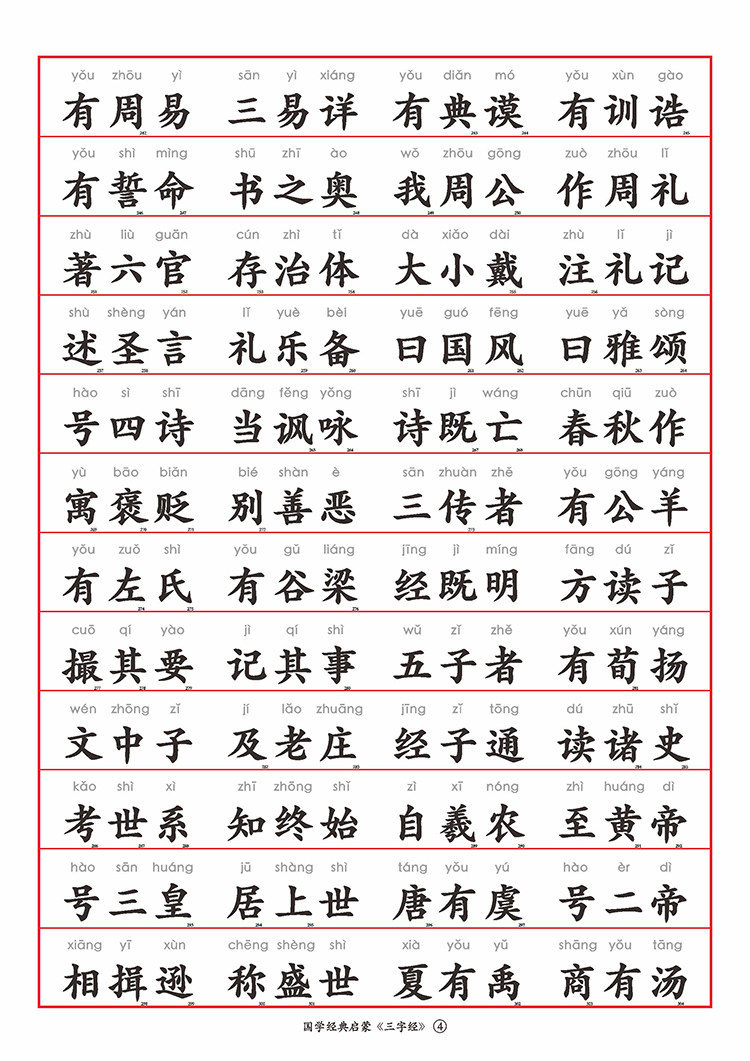 yǒu zhōu yì sān yì xiáng yǒu diǎn mó yǒu xùn gào
有周易 三易详 有典谟 有训诰
yǒu shì mìng shū zhī ào wǒ zhōu gōng zuò zhōu lǐ
有誓命 书之奥 我周公 作周礼
zhù liù guān cún zhì tǐ dà xiǎo dài zhù lǐ jì
著六官 存治体 大小戴 注礼记
shù shèng yán lǐ yuè bèi yuē guó fēng yuē yǎ sòng
述圣言 礼乐备 曰国风 曰雅颂
hào sì shī dāng fěng yǒng shī jì wáng chūn qiū zuò
号四诗 当讽咏 诗既亡 春秋作
yù bāo biǎn bié shàn è sān zhuàn zhě yǒu gōng yáng
寓褒贬 别善恶 三传者 有公羊
yǒu zuǒ shì yǒu gǔ liáng jīng jì míng fāng dú zǐ
有左氏 有谷梁 经既明 方读子
cuō qí yào jì qí shì wǔ zǐ zhě yǒu xún yáng
撮其要 记其事 五子者 有荀扬
wén zhōng zǐ jí lǎo zhuāng jīng zǐ tōng dú zhū shǐ
文中子 及老庄 经子通 读诸史
kǎo shì xì zhī zhōng shǐ zì xī nóng zhì huáng dì
考世系 知终始 自羲农 至黄帝
hào sān huáng jū shàng shì táng yǒu yú hào èr dì
号三皇 居上世 唐有虞 号二帝
xiāng yī xùn chēng shèng shì xià yǒu yǔ shāng yǒu tāng
相揖逊 称盛世 夏有禹 商有汤
国学经典启蒙《三字经》④